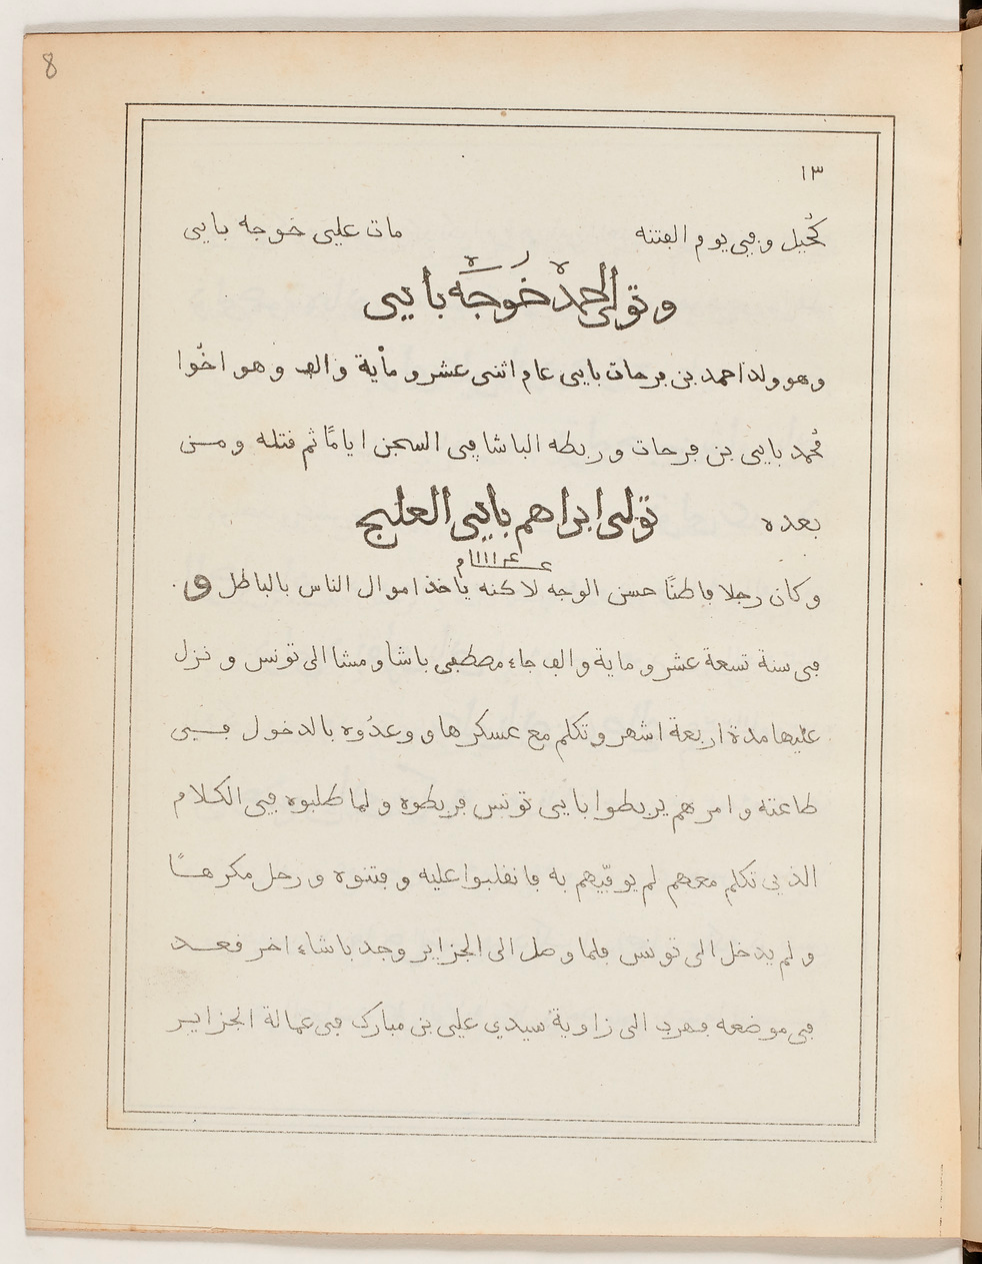 8
١٣
كُحيل وڢي يوم الڢتنه مات علي خوجه بايي
وتولى احمد خوجه بايي
وهو ولد احمد بن ڢرحات بايي عام اثنى عشر وماية والڢ وهو اخُوا
مُحمد بايي بن ڢرحات وربطه الباشا ڢي السجن ايامًا ثم ڧتله ومن
بعده تولى ابراهم بايي العلج
وكان رجلا ڢاطنًا حسن الوجه لاكنه ياخذ اموال الناس بالباطل و
ڢي سنة تسعة عشر وماية والڢ جاء مصطڢى باشا ومشا الى تونس ونزل
عليها مدة اربعة اشهر وتكلم مع عسكرها ووعدُوه بالدخول ڢي
طاعته وامرهم يربطوا بايي تونس ڢربطوه ولما طلبوه ڢي الكلام
الذي تكلم معهم لم يوڢّيهم به ڢانڧلبوا عليه وڢتنوه ورحل مكرهًا
ولم يدخل الى تونس ڢلما وصل الى الجزاير وجد باشاء اخر ڧعد
ڢي موضعه ڢهرب الى زاوية سيدي علي بن مبارك ڢي عمالة الجزاير